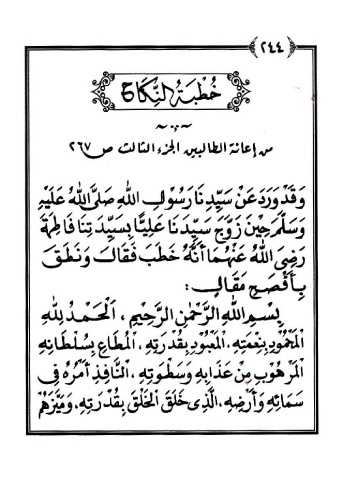 ٢٤٤
خُطْبَةُ النِّكَاحِ
من إعانة الطالبين الجزء الثالث ص ٢٦٧
وَقَدْ وَرَدَ عَنْ سَيِّدِنَا رَسُوْلِ اللهِ صَلَّى اللهُ عَلَيْهِ
وَسَلَّمَ حِيْنَ زَوَّجَ سَيِّدَنَا عَلِيًّا بِسَيِّدَتِنَا فَاطِمَةَ
رَضِيَ اللهُ عَنْهُمَا أَنَّهُ خَطَبَ فَقَالَ وَنَطَقَ
بِأَفْصَحِ مَقَالٍ :
بِسْمِ اللهِ الرَّحْمٰنِ الرَّحِيْمِ ، اَلْحَمْدُ لِلّٰهِ
الْمَحْمُوْدِ بِنِعْمَتِهِ، الْمَعْبُوْدِ بِقُدْرَتِهِ، الْمُطَاعِ بِسُلْطَانِهِ
الْمَرْهُوْبِ مِنْ عَذَابِهِ وَسَطْوَتِهِ، النَّافِذِ أَمْرُهُ فِى
سَمَائِهِ وَأَرْضِهِ، الَّذِى خَلَقَ الْخَلْقَ بِقُدْرَتِهِ، وَمَيَّزَهُمْ